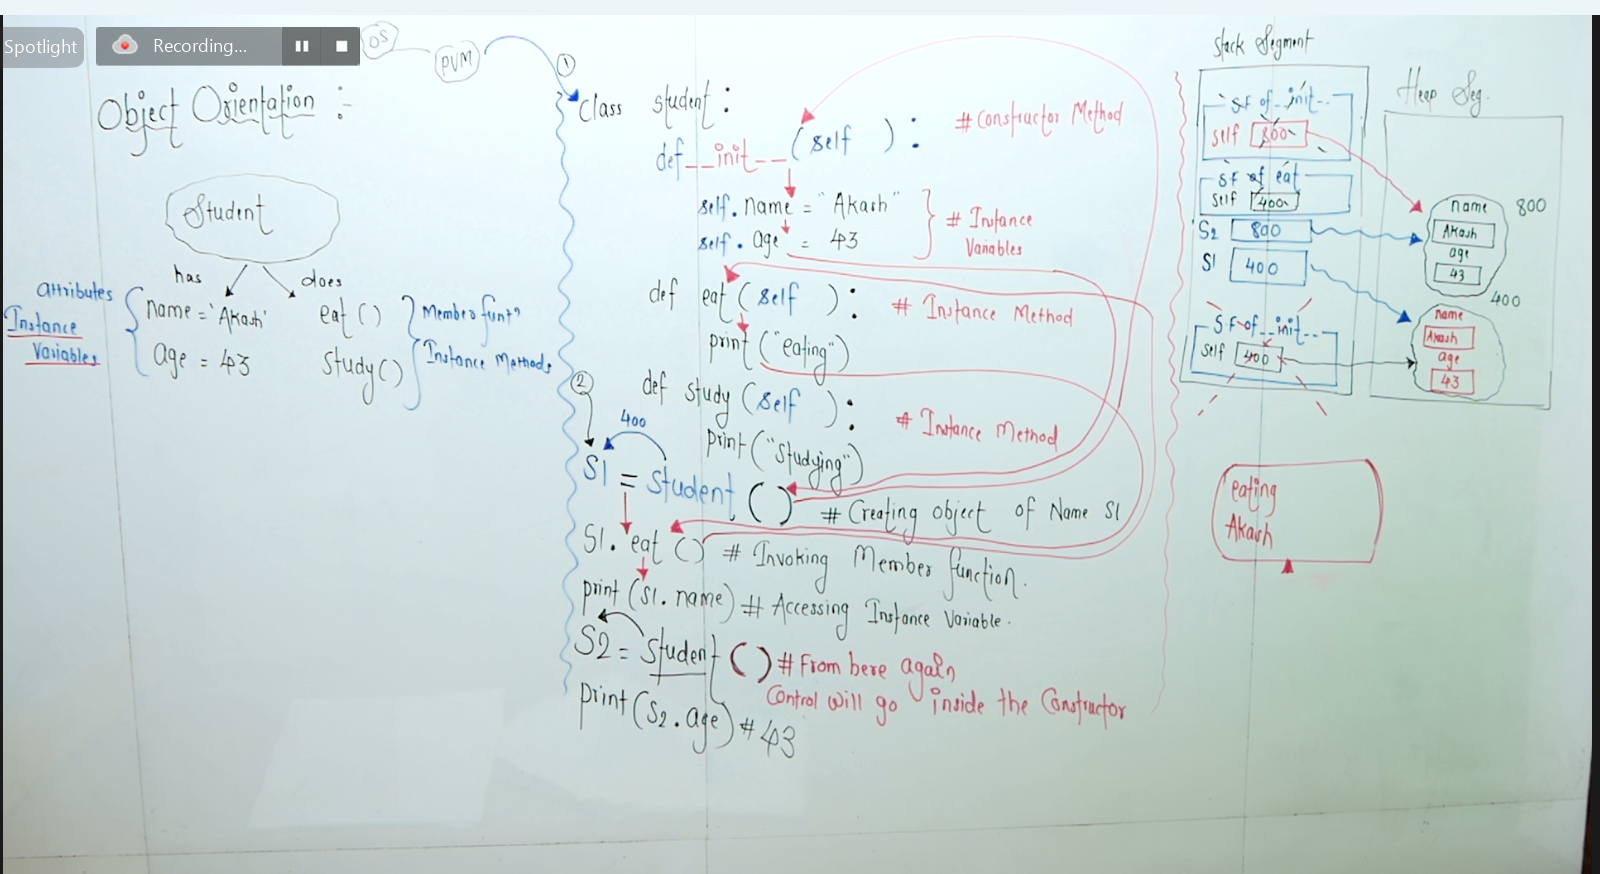 Spotlight
Recording...
OS
PVM
Object Orientation :-
Student
has
does
attributes
Instance
Variables
name = 'Akash'
age = 43
eat ()
study()
Member funtn
Instance Methods
1
Class Student :
def __init__ (self ) :
# Constructor Method
self. name = "Akash"
self. age = 43
# Instance
Variables
def eat (self ) :
# Instance Method
print ("eating")
def study (self ) :
# Instance Method
print ("Studying")
2
400
S1 = Student ()
# Creating object of Name S1
S1. eat () # Invoking Member function.
print (S1. name) # Accessing Instance Variable.
S2 = Student () # From here again
Control will go inside the Constructor
print (S2. age) # 43
Stack Segment
SF of __init__
self 800
SF of eat
self 400
S2 800
S1 400
SF of __init__
self 400
Heap Seg.
800
name
Akash
age
43
400
name
Akash
age
43
eating
Akash